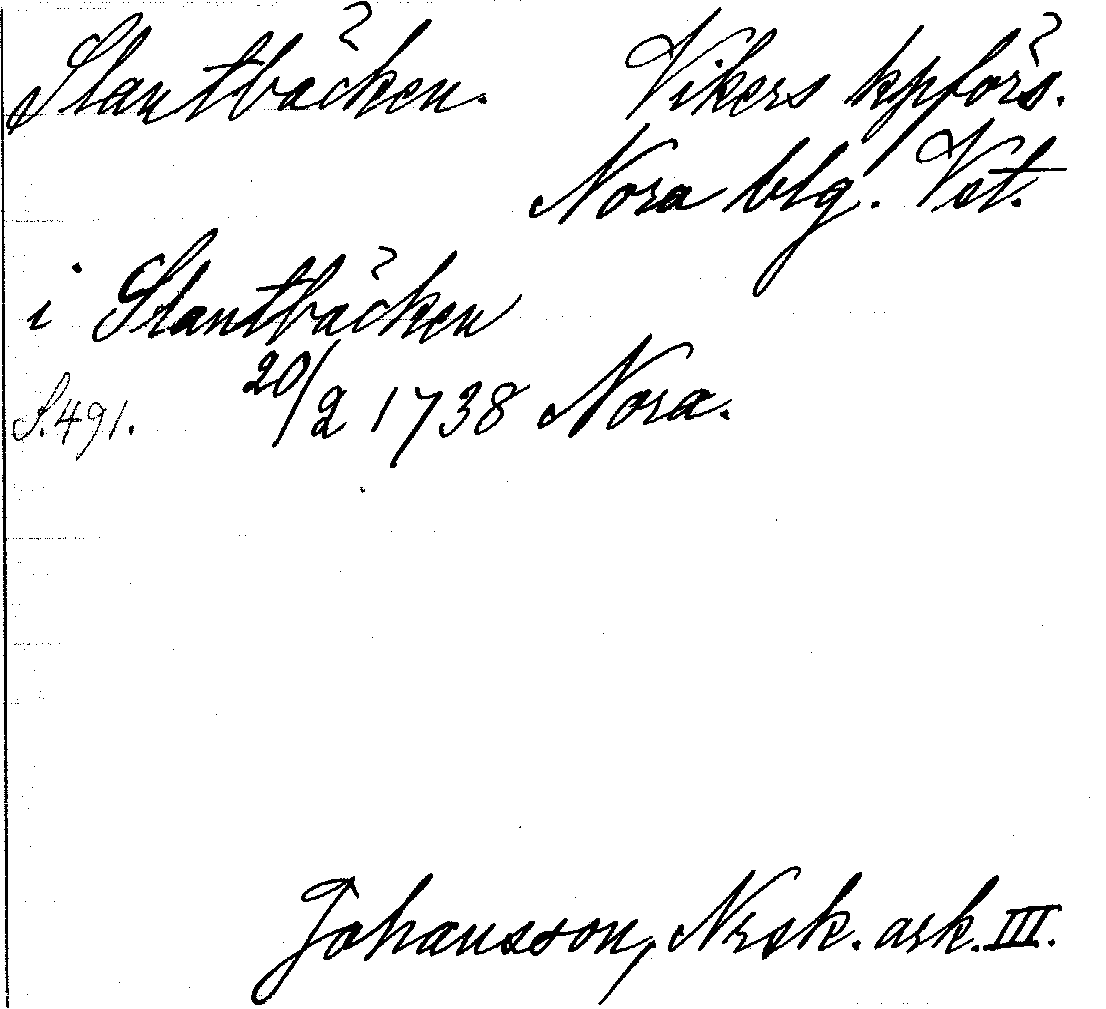 Slantbäcken. Vikers kpförs.
Nora blg. Vst.
i Slantbäcken
S. 491. 20/2 1738 Nora.
Johansson, Nrsk. ark. III.